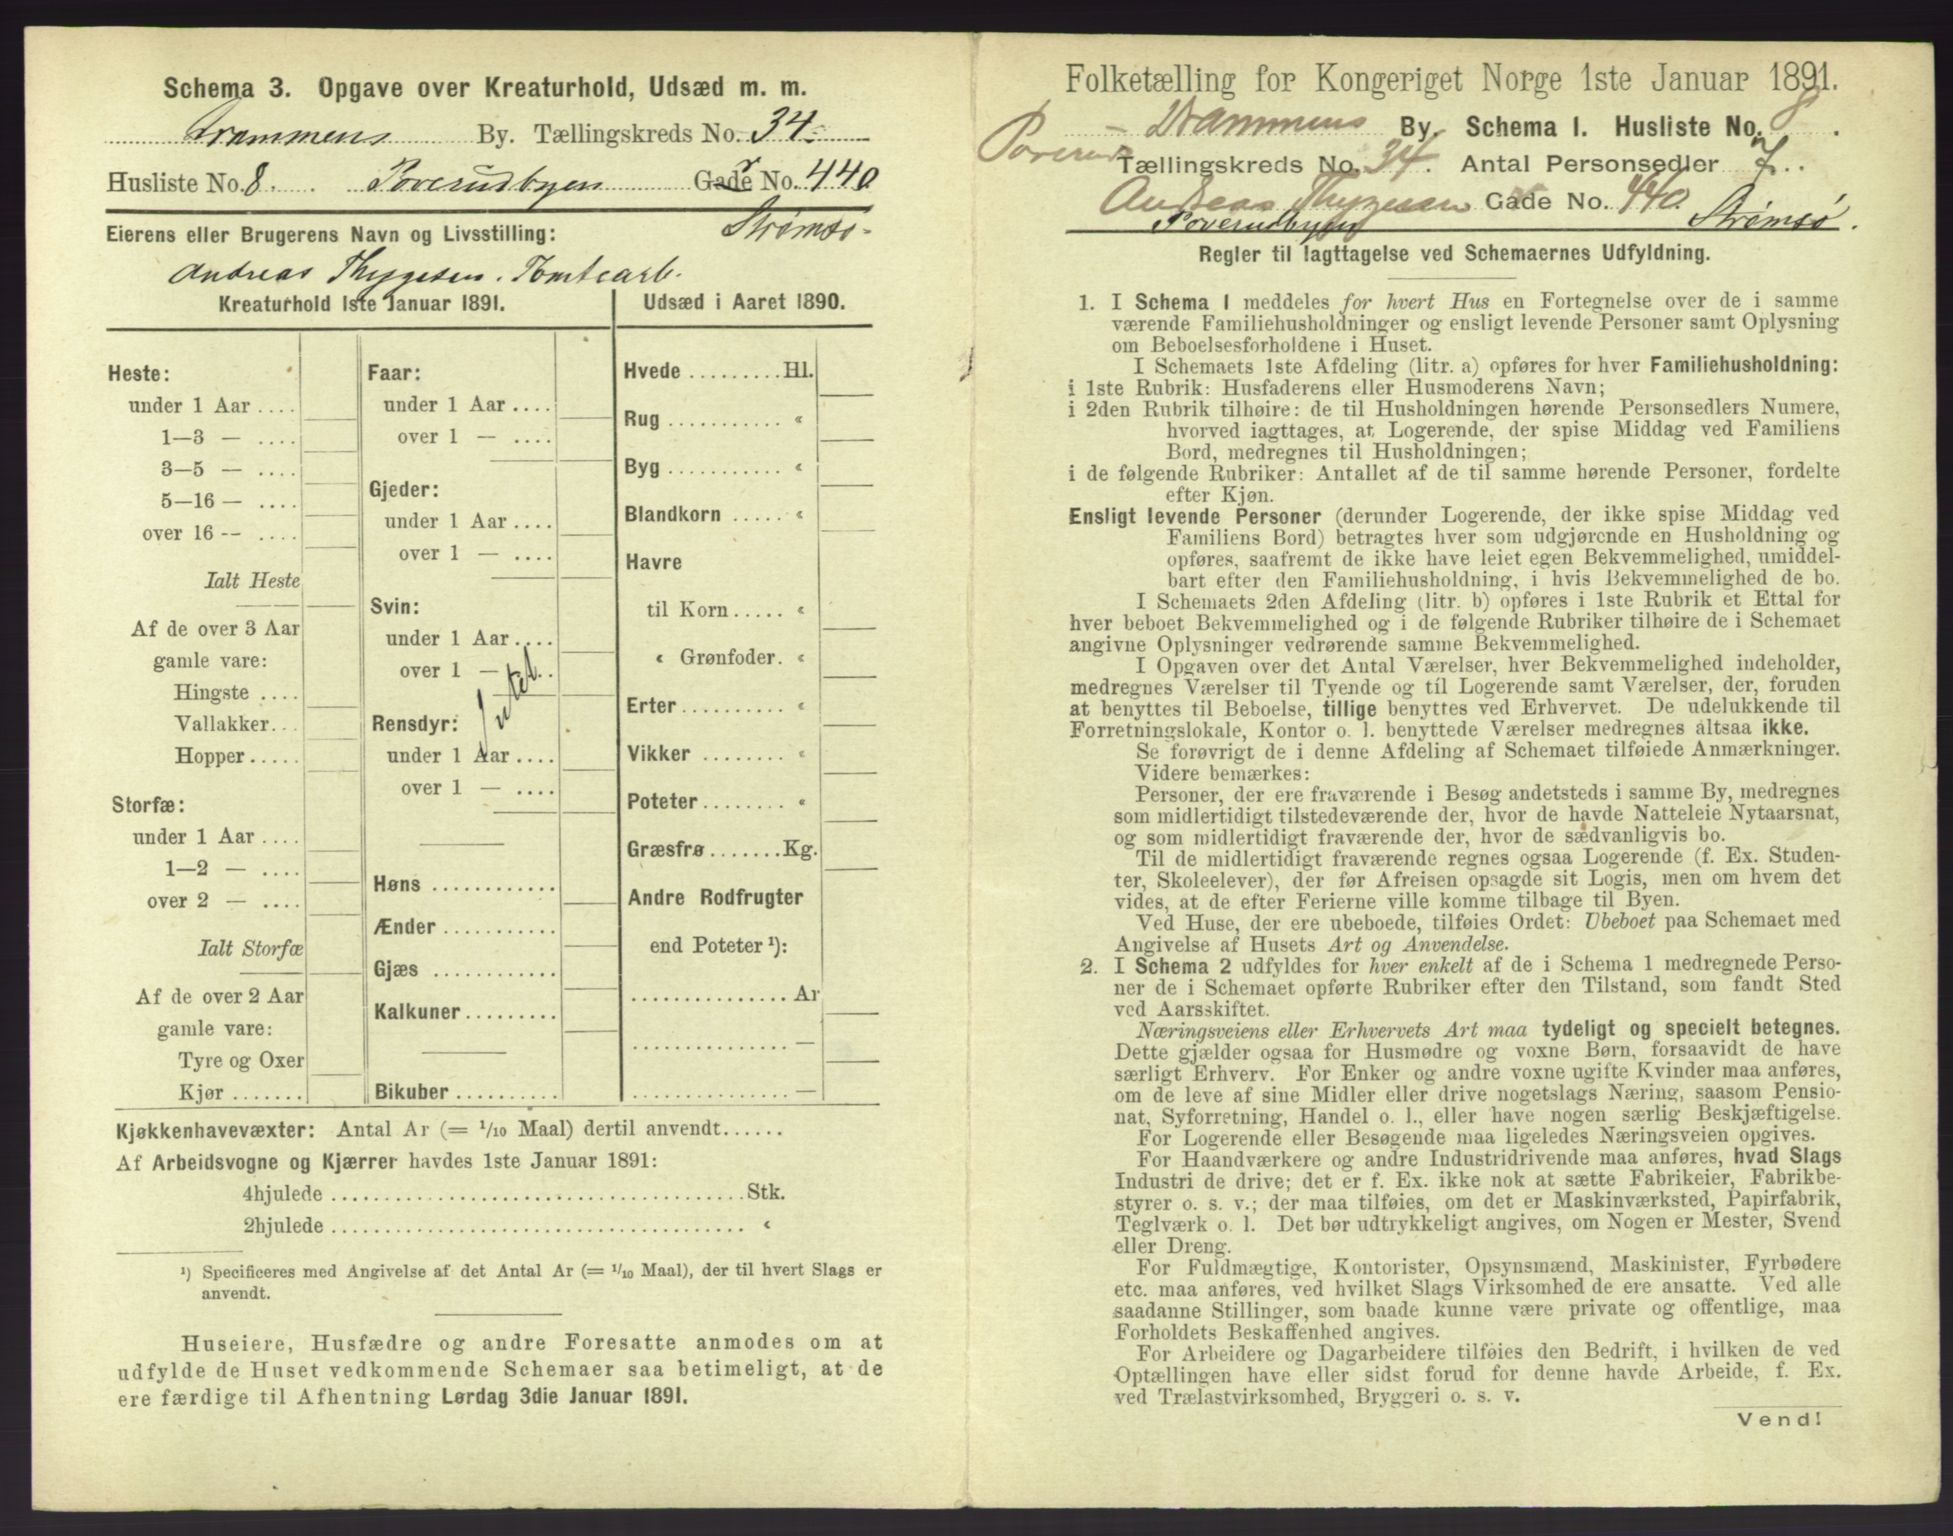 Schema 3. Opgave over Kreaturhold, Udsæd m. m.
Drammens By. Tællingskreds No. 34.
Husliste No. 8. Poverudbyen Gade No. 440
Strømsø.
Eierens eller Brugerens Navn og Livsstilling:
Andreas Thygesen. Tomtearb.
Kreaturhold 1ste Januar 1891.
Heste:
under 1 Aar ....
1—3 — ....
3—5 — ....
5—16 — ....
over 16 -- ....
Ialt Heste
Af de over 3 Aar
gamle vare:
Hingste ....
Vallakker...
Hopper.....
Storfæ:
under 1 Aar ....
1—2 — ....
over 2 — ....
Ialt Storfæ
Af de over 2 Aar
gamle vare:
Tyre og Oxer
Kjør .......
Faar:
under 1 Aar ....
over 1 — ....
Gjeder:
under 1 Aar ....
over 1 — ....
Svin:
under 1 Aar ....
over 1 — ....
Intet
Rensdyr:
under 1 Aar ....
over 1 — ....
Høns ............
Ænder ...........
Gjæs ............
Kalkuner.........
Bikuber..........
Udsæd i Aaret 1890.
Hvede .........Hl.
Rug ........... «
Byg ........... «
Blandkorn ..... «
Havre
til Korn..... «
« Grønfoder. «
Erter.......... «
Vikker ........ «
Poteter........ «
Græsfrø.......Kg.
Andre Rodfrugter
end Poteter ¹):
............... Ar
............... —
............... —
Kjøkkenhavevæxter: Antal Ar (= 1/10 Maal) dertil anvendt......
Af Arbeidsvogne og Kjærrer havdes 1ste Januar 1891:
4hjulede ........................................Stk.
2hjulede ........................................ «
¹) Specificeres med Angivelse af det Antal Ar (= 1/10 Maal), der til hvert Slags er
anvendt.
Huseiere, Husfædre og andre Foresatte anmodes om at
udfylde de Huset vedkommende Schemaer saa betimeligt, at de
ere færdige til Afhentning Lørdag 3die Januar 1891.
Folketælling for Kongeriget Norge 1ste Januar 1891.
Drammens By. Schema I. Husliste No. 8.
Tællingskreds No. 34. Antal Personsedler 7.
Andreas Thygesen Gade No. 440.
Poverudbyen Strømsø.
Regler til Iagttagelse ved Schemaernes Udfyldning.
1. I Schema 1 meddeles for hvert Hus en Fortegnelse over de i samme
værende Familiehusholdninger og ensligt levende Personer samt Oplysning
om Beboelsesforholdene i Huset.
I Schemaets 1ste Afdeling (litr. a) opføres for hver Familiehusholdning:
i 1ste Rubrik: Husfaderens eller Husmoderens Navn;
i 2den Rubrik tilhøire: de til Husholdningen hørende Personsedlers Numere,
hvorved iagttages, at Logerende, der spise Middag ved Familiens
Bord, medregnes til Husholdningen;
i de følgende Rubriker: Antallet af de til samme hørende Personer, fordelte
efter Kjøn.
Ensligt levende Personer (derunder Logerende, der ikke spise Middag ved
Familiens Bord) betragtes hver som udgjørende en Husholdning og
opføres, saafremt de ikke have leiet egen Bekvemmelighed, umiddel-
bart efter den Familiehusholdning, i hvis Bekvemmelighed de bo.
I Schemaets 2den Afdeling (litr. b) opføres i 1ste Rubrik et Ettal for
hver beboet Bekvemmelighed og i de følgende Rubriker tilhøire de i Schemaet
angivne Oplysninger vedrørende samme Bekvemmelighed.
I Opgaven over det Antal Værelser, hver Bekvemmelighed indeholder,
medregnes Værelser til Tyende og til Logerende samt Værelser, der, foruden
at benyttes til Beboelse, tillige benyttes ved Erhvervet. De udelukkende til
Forretningslokale, Kontor o. l. benyttede Værelser medregnes altsaa ikke.
Se forøvrigt de i denne Afdeling af Schemaet tilføiede Anmærkninger.
Videre bemærkes:
Personer, der ere fraværende i Besøg andetsteds i samme By, medregnes
som midlertidigt tilstedeværende der, hvor de havde Natteleie Nytaarsnat,
og som midlertidigt fraværende der, hvor de sædvanligvis bo.
Til de midlertidigt fraværende regnes ogsaa Logerende (f. Ex. Studen-
ter, Skoleelever), der før Afreisen opsagde sit Logis, men om hvem det
vides, at de efter Ferierne ville komme tilbage til Byen.
Ved Huse, der ere ubeboede, tilføies Ordet: Ubeboet paa Schemaet med
Angivelse af Husets Art og Anvendelse.
2. I Schema 2 udfyldes for hver enkelt af de i Schema 1 medregnede Perso-
ner de i Schemaet opførte Rubriker efter den Tilstand, som fandt Sted
ved Aarsskiftet.
Næringsveiens eller Erhvervets Art maa tydeligt og specielt betegnes.
Dette gjælder ogsaa for Husmødre og voxne Børn, forsaavidt de have
særligt Erhverv. For Enker og andre voxne ugifte Kvinder maa anføres,
om de leve af sine Midler eller drive nogetslags Næring, saasom Pensio-
nat, Syforretning, Handel o. l., eller have nogen særlig Beskjæftigelse.
For Logerende eller Besøgende maa ligeledes Næringsveien opgives.
For Haandværkere og andre Industridrivende maa anføres, hvad Slags
Industri de drive; det er f. Ex. ikke nok at sætte Fabrikeier, Fabrikbe-
styrer o. s. v.; der maa tilføies, om det er Maskinværksted, Papirfabrik,
Teglværk o. l. Det bør udtrykkeligt angives, om Nogen er Mester, Svend
eller Dreng.
For Fuldmægtige, Kontorister, Opsynsmænd, Maskinister, Fyrbødere
etc. maa anføres, ved hvilket Slags Virksomhed de ere ansatte. Ved alle
saadanne Stillinger, som baade kunne være private og offentlige, maa
Forholdets Beskaffenhed angives.
For Arbeidere og Dagarbeidere tilføies den Bedrift, i hvilken de ved
Optællingen have eller sidst forud for denne havde Arbeide, f. Ex.
ved Trælastvirksomhed, Bryggeri o. s. v.
Vend!